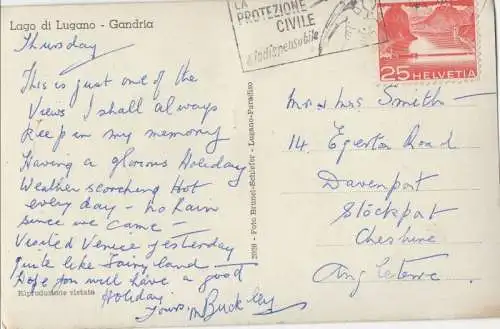 Lago di Lugano - Gandria
Thursday
This is just one of the
Views I shall always
keep in my memory
Having a glorious Holiday
Weather scorching Hot
every day - no Rain
since we came -
Visited Venice yesterday
quite like Fairy land -
Hope you will have a good
Holiday
Yours, M Buckley
Riproduzione vietata
2039 - Foto Brunel-Schäfer - Lugano-Paradiso
LA
PROTEZIONE
CIVILE
è indispensabile
25 HELVETIA
Mr & Mrs Smith -
14, Egerton Road
Davenport
Stockport
Cheshire
Angleterre